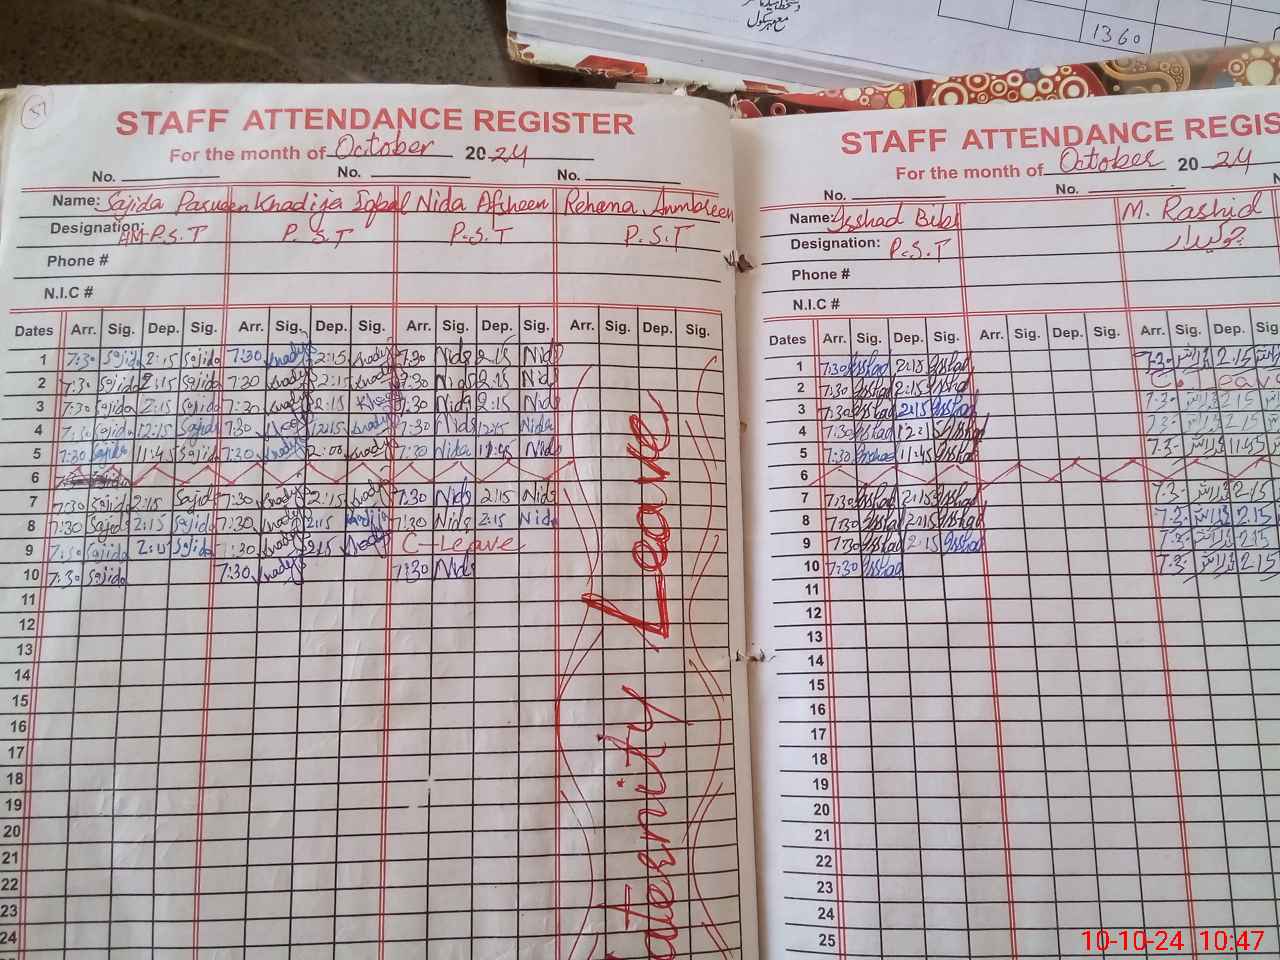 1360
57
STAFF ATTENDANCE REGISTER
For the month of October 2024
No. No. No.
Name: Sajida Parveen Khadija Iqbal Nida Afsheen Rehana Ambreen
Designation: HM-P.S.T P.S.T P.S.T P.S.T
Phone #
N.I.C #
Dates Arr. Sig. Dep. Sig. Arr. Sig. Dep. Sig. Arr. Sig. Dep. Sig. Arr. Sig. Dep. Sig.
1 7:30 Sajida 2:15 Sajida 7:30 Khadija 2:15 Khadija 7:30 Nida 2:15 Nida
2 7:30 Sajida 2:15 Sajida 7:30 Khadija 2:15 Khadija 7:30 Nida 2:15 Nida
3 7:30 Sajida 2:15 Sajida 7:30 Khadija 2:15 Khadija 7:30 Nida 2:15 Nida
4 7:30 Sajida 12:15 Sajida 7:30 Khadija 12:15 Khadija 7:30 Nida 12:15 Nida
5 7:30 Sajida 11:45 Sajida 7:30 Khadija 2:00 Khadija 7:30 Nida 11:45 Nida
6
7 7:30 Sajida 2:15 Sajida 7:30 Khadija 2:15 Khadija 7:30 Nida 2:15 Nida
8 7:30 Sajida 2:15 Sajida 7:30 Khadija 2:15 Khadija 7:30 Nida 2:15 Nida
9 7:30 Sajida 2:15 Sajida 7:30 Khadija 2:15 Khadija C-Leave
10 7:30 Sajida 7:30 Khadija 7:30 Nida
11
12
13
14
15
16
17
18
19
20
21
22
23
24
aternity Leave
STAFF ATTENDANCE REGIS
For the month of October 2024
No. No.
Name: Irshad Bibi M. Rashid
Designation: P.S.T چوکیدار
Phone #
N.I.C #
Dates Arr. Sig. Dep. Sig. Arr. Sig. Dep. Sig. Arr. Sig. Dep. Sig
1 7:30 Irshad 2:15 Irshad 7:30 2:15
2 7:30 Irshad 2:15 Irshad C. Leave
3 7:30 Irshad 2:15 Irshad 7:30 2:15
4 7:30 Irshad 12:15 Irshad 7:30 2:15
5 7:30 Irshad 11:45 Irshad 7:30 11:45
6
7 7:30 Irshad 2:15 Irshad 7:30 2:15
8 7:30 Irshad 2:15 Irshad 7:30 2:15
9 7:30 Irshad 2:15 Irshad 7:30 2:15
10 7:30 Irshad 7:30 2:15
11
12
13
14
15
16
17
18
19
20
21
22
23
24
25
10-10-24 10:47